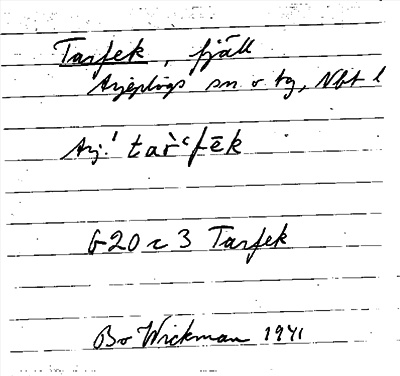 Tarfek, fjäll
Arjeplogs sn o tg, Nbt l
Arj.! tàr̀ʿfēk
620 r 3 Tarfek
Bo Wickman 1941